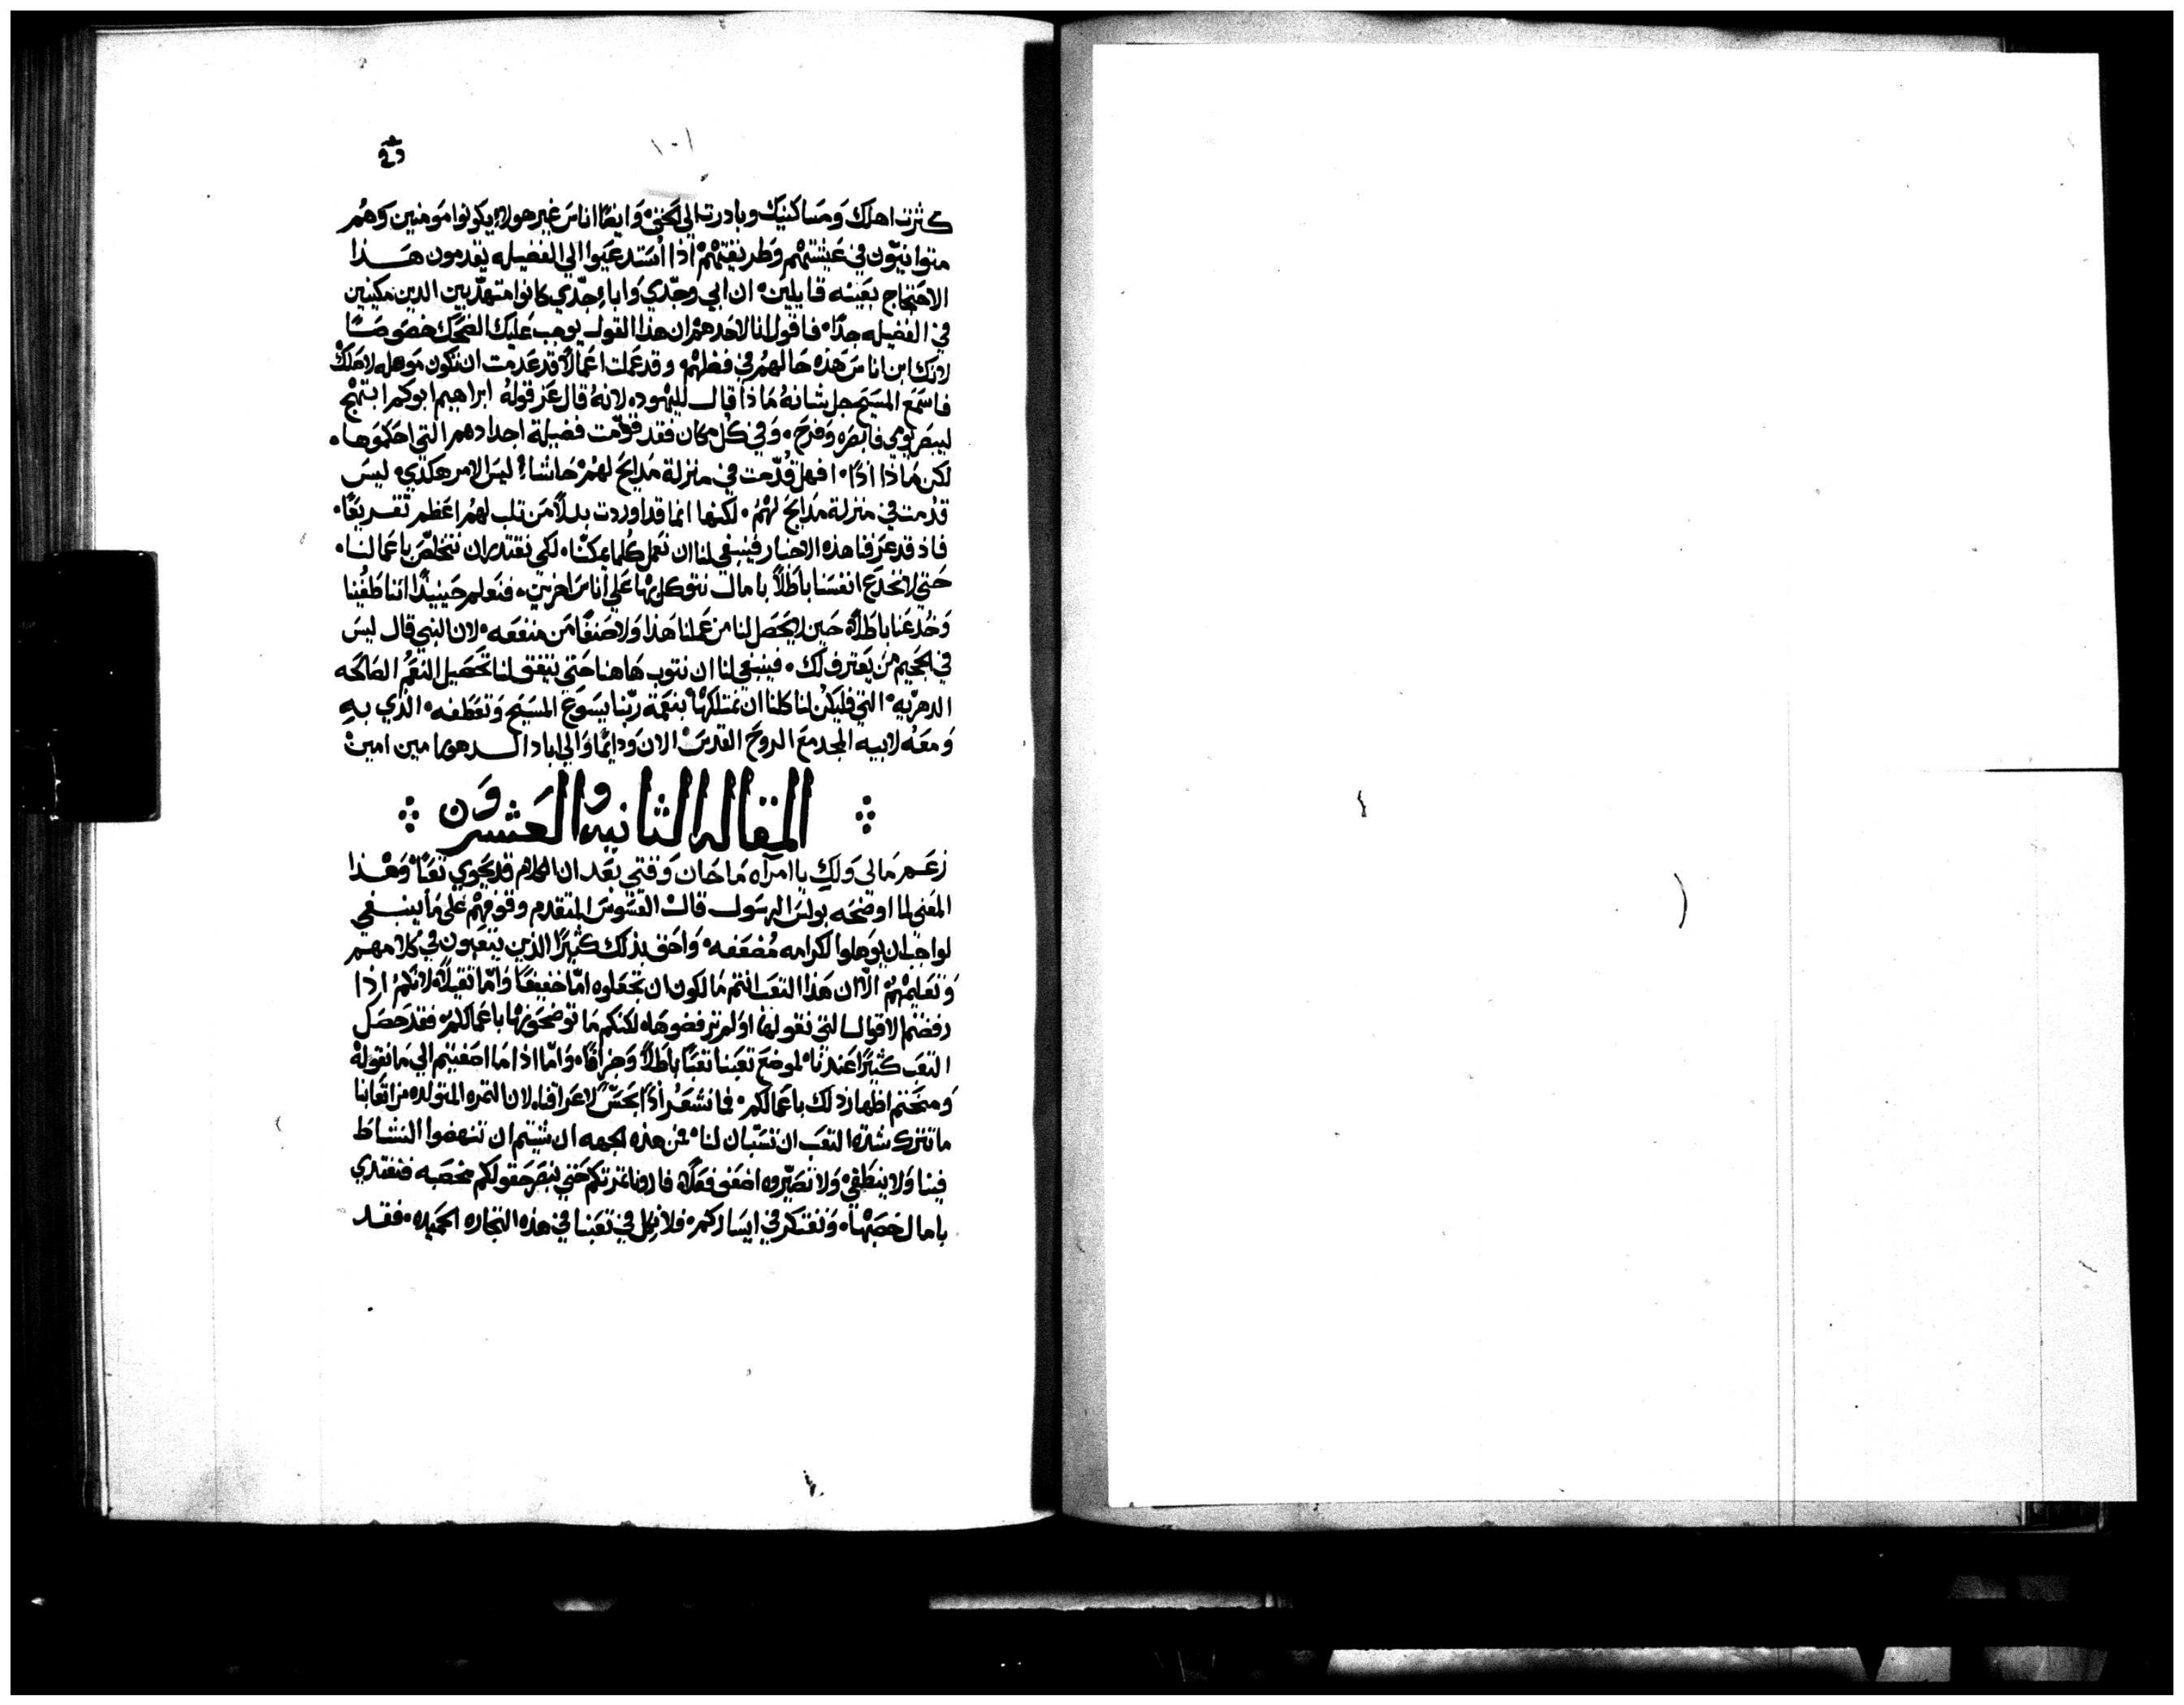 ١٠١
كثرت اهلك ومساكنيك وبادرت الى الحق، وايضًا اناس غير هولاء يكونوا مومنين وهم
متوانيّون في عيشتهم وطريقتهم اذا استدعيوا الي الفضيله يقدمون هذا
الاحتجاج بعينه قايلين، ان ابي وجدّي وابا جدّي كانوا متهدّبين الدين مكينين
في الفضيله جدًا، فاقول انا لاحدهم ان هذا القول يوجب عليك الضحك خصوصًا
لانك ابن اناس هذه حالهم في فضلهم، وقد عملت اعمالًا قد عدمت ان تكون موهله لاهلك
فاسمع المسيح جل شانهُ ماذا قال لليهود، لانهُ قال عز قولهُ ابراهيم ابوكم ابتهج
ليبصر يومي فابصره وفرح، وفي كل مكان فقد قوّمت فضيلة اجدادهم التي احكموها،
لكن ماذا اذًا، افهل قُدّمت في منزلة مدايح لهم حاشا، ليس الامر هكذي، ليس
قدمت في منزلة مدايح لهم، لكنها انما قد اوردت بدلًا من ثلب لهم اعظم تقريعًا،
فاذ قد عرفنا هذه الاخبار فينبغي لنا ان نعمل كلما يمكننا، لكي نقتدر ان نتخلص باعمالنا،
حتي لا نخدع انفسنا باطلًا بامال نتوكل بها علي اناس اخرين، فنعلم حينيذًا اننا طغينا
وخُدعنا باطلًا، حين لا يحصل لنا من عملنا هذا ولا صنفًا من منفعه، لان النبي قال ليس
في الجحيم من يعترف لك، فينبغي لنا ان نتوب هاهنا حتي يتفق لنا تحصيل النعم الصالحه
الدهريه، التي فليكن لنا كلنا ان نمتلكها بنعمة ربّنا يسوع المسيح وتعطفه، الذي به
ومعهُ لابيه المجد مع الروح القدس الان ودايمًا والي اباد الدهور امين امين
المقاله الثانيه والعشرون
زعم مالي ولك يا امراه ما حان وقتي بعد ان الكلام قد يحوي تعبًا وهذا
المعني لما اوضحه بولس الرسول قال القسوس المتقدم وقوفهم علي ما ينبغي
لواجب ان يوهلوا لكرامه مُضعفه، واحق بذلك كثيرًا الذين يتعبون في كلامهم
وتعليمهم الّا ان هذا التعب انتم مالكون ان تجعلوه امّا خفيفًا وامّا ثقيلًا، لانكم اذا
رفضتم الاقوال التي نقولها او لم ترفضوها، لكنكم ما توضحونها باعمالكم، فقد حصل
التعب كثيرًا عندنا، لموضع تعبنا تعبًا باطلًا وجزافًا، وامّا اذا ما اصغيتم الي ما نقوله
ومنحتم اظهار ذلك باعمالكم، فما نشعر اذًا بحسّ لاعراقنا، لان الثمره المتولده من اتعابنا
ما تترك شدة التعب ان تستبان لنا، فمن هذه الجهه ان شيتم ان تنهضوا النشاط
فينا ولا ينطفي، ولا تصيّروه اضعف فعلًا، فارونا ثمرتكم حتي نبصر حقولكم مخصبه فنغتدي
بامال خصبها، ونفتكر في ايساركم، فلا نكل في تعبنا في هذه التجاره الحميده، فقد